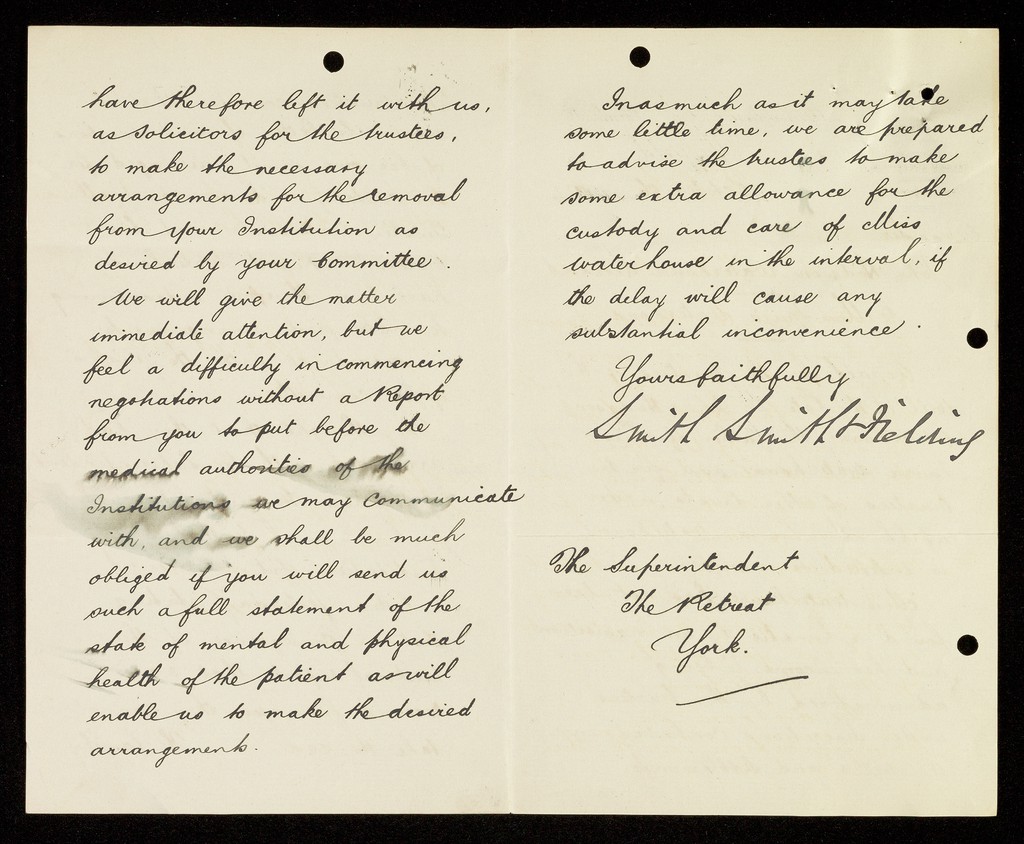 have therefore left it with us,
as solicitors for the trustees,
to make the necessary
arrangements for the removal
from your Institution as
desired by your Committee.
We will give the matter
immediate attention, but we
feel a difficulty in commencing
negotiations without a Report
from you to put before the
medical authorities of the
Institutions we may communicate
with, and we shall be much
obliged if you will send us
such a full statement of the
state of mental and physical
health of the patient as will
enable us to make the desired
arrangements.
Inasmuch as it may take
some little time, we are prepared
to advise the trustees to make
some extra allowance for the
custody and care of Miss
Waterhouse in the interval, if
the delay will cause any
substantial inconvenience.
Yours faithfully
Smith Smith & Fielding
The Superintendent
The Retreat
York.